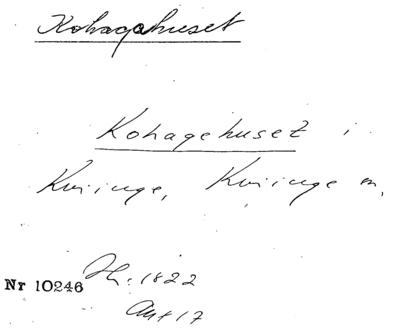 Kohagehuset
Kohagehuset i
Kviinge, Kviinge sn,
Hr. 1822
Nr 10246
Akt 17